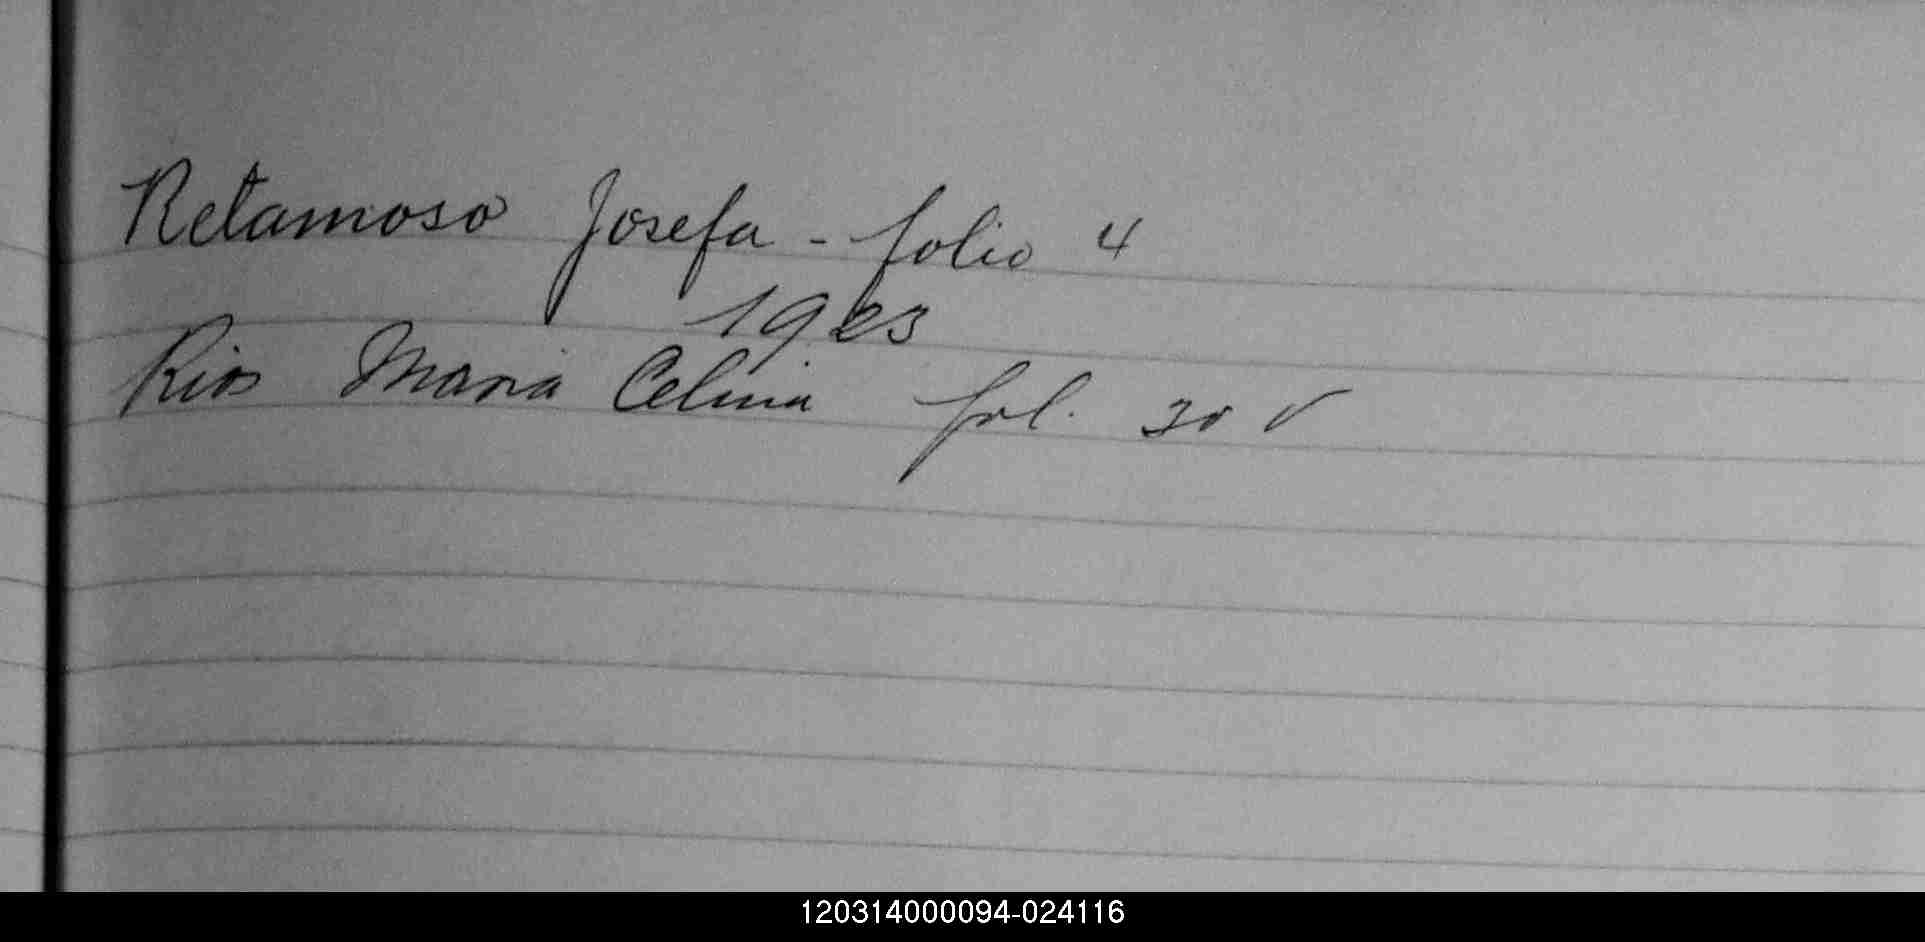 Retamoso Josefa - folio 4
1923
Rios Maria Celina fol. 30 v
120314000094-024116